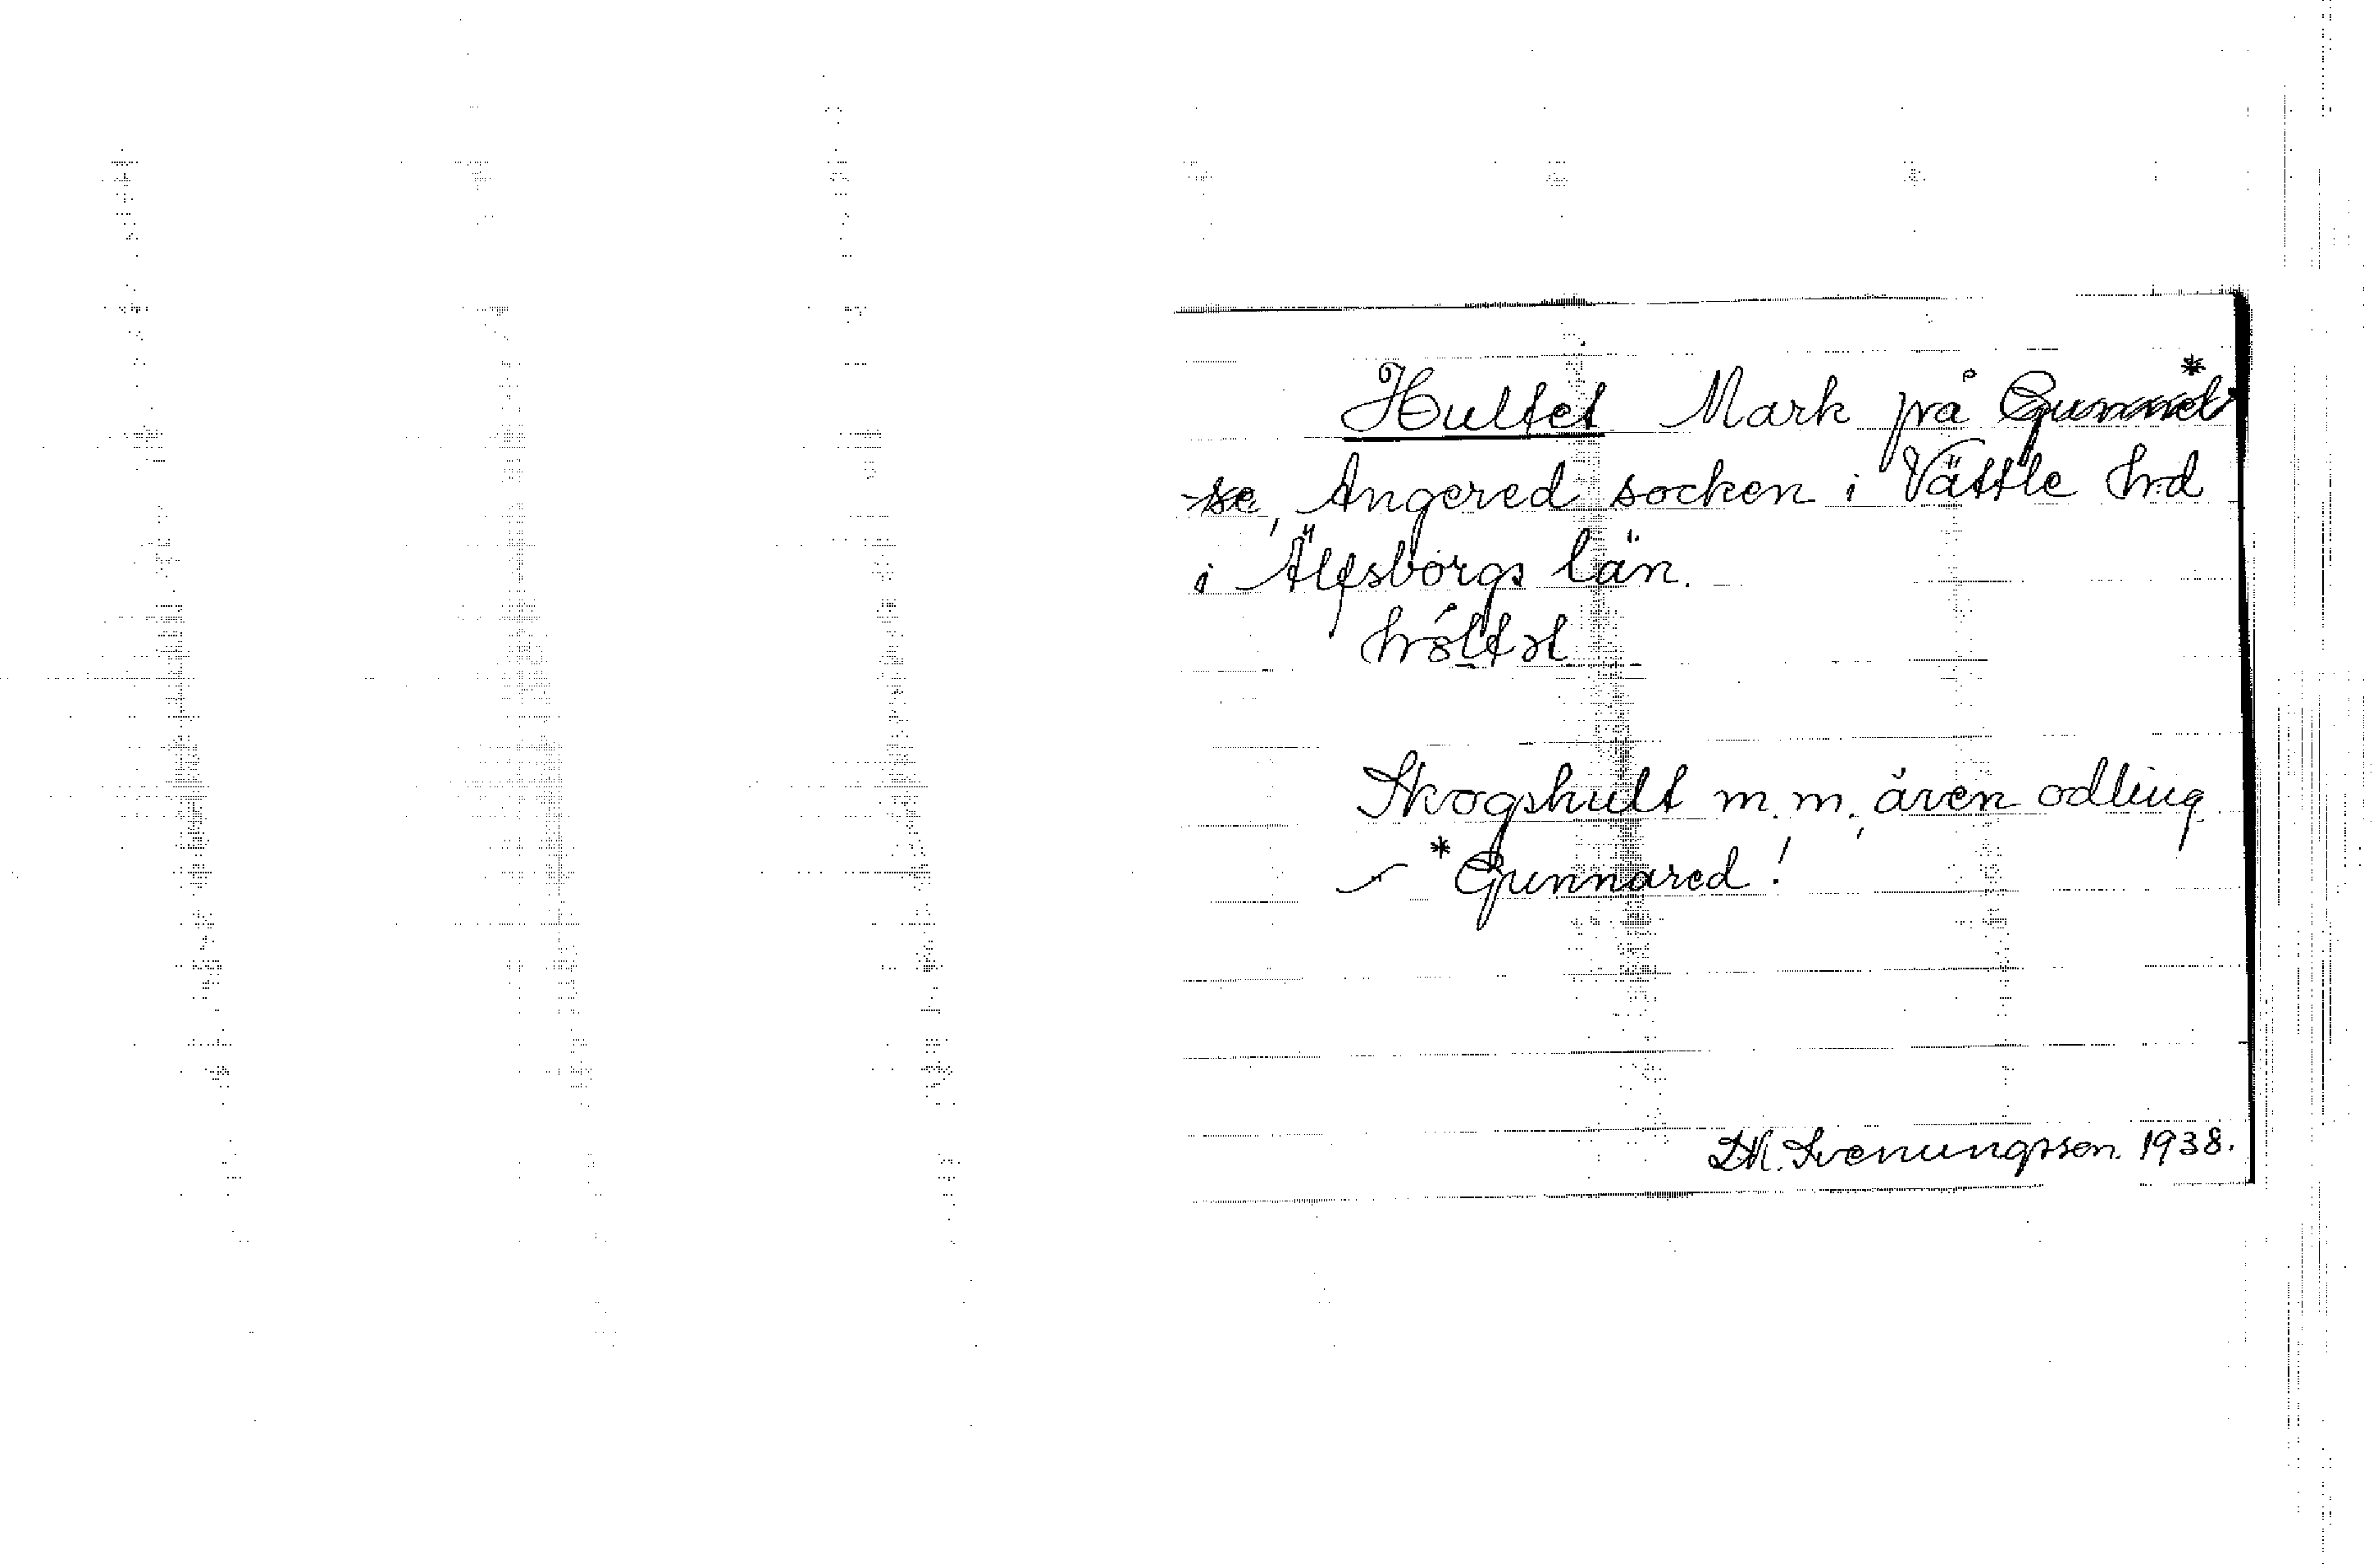 Hultet Mark på *
Angered socken i Vättle hrd
i Älfsborgs län.
Skogshult m. m., även odling
* Gunnared!
Svenungsson. 1938.